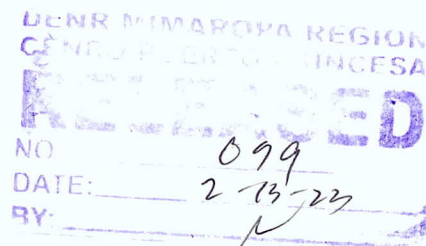 DENR MIMAROPA REGION
CENRO PUERTO PRINCESA
RELEASED
NO 099
DATE: 2-13-23
BY: